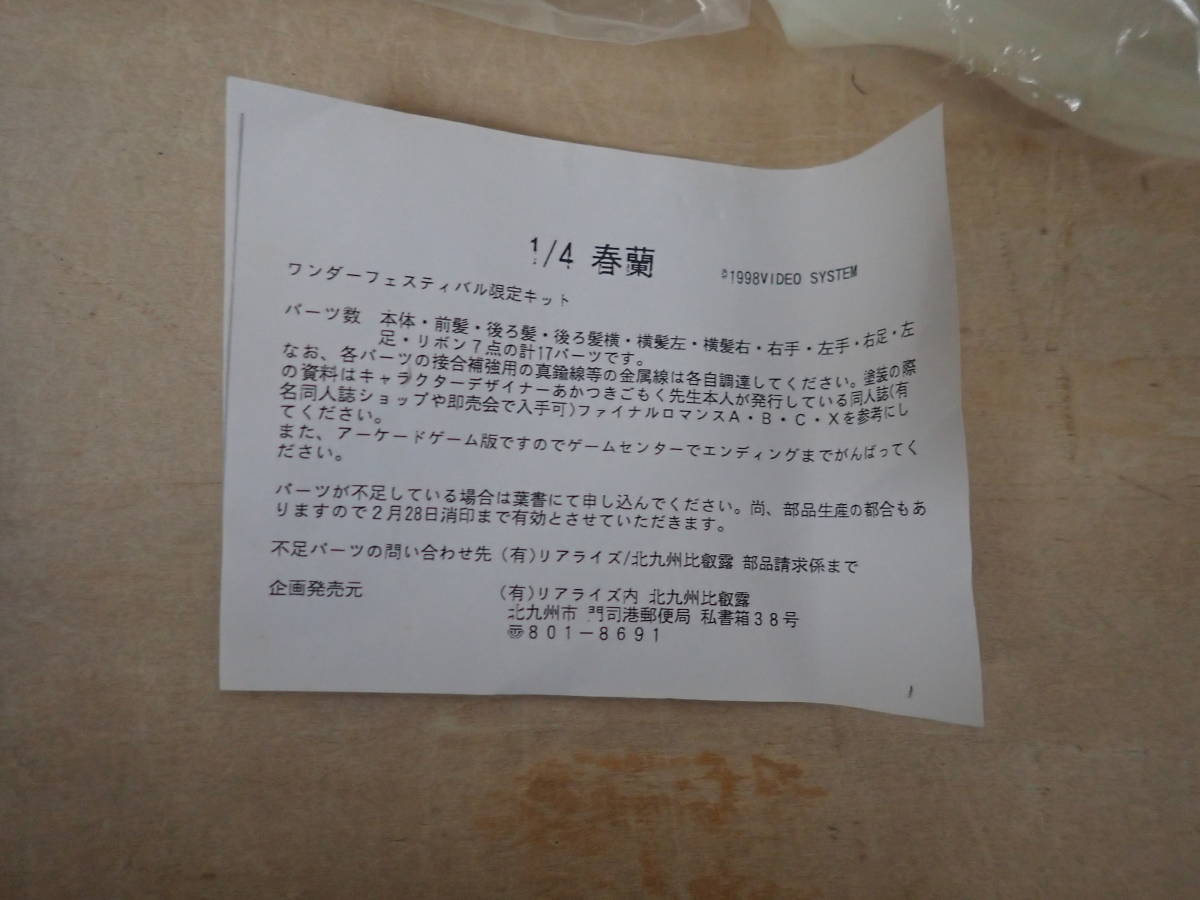 1/4 春蘭 ©1998VIDEO SYSTEM
ワンダーフェスティバル限定キット
パーツ数 本体・前髪・後ろ髪・後ろ髪横・横髪左・横髪右・右手・左手・右足・左
足・リボン7点の計17パーツです。
なお、各パーツの接合補強用の真鍮線等の金属線は各自調達してください。塗装の際
の資料はキャラクターデザイナーあかつきごもく先生本人が発行している同人誌(有
名同人誌ショップや即売会で入手可)ファイナルロマンスA・B・C・Xを参考にし
てください。
また、アーケードゲーム版ですのでゲームセンターでエンディングまでがんばってく
ださい。
パーツが不足している場合は葉書にて申し込んでください。尚、部品生産の都合もあ
りますので2月28日消印まで有効とさせていただきます。
不足パーツの問い合わせ先 (有)リアライズ/北九州比叡露 部品請求係まで
企画発売元 (有)リアライズ内 北九州比叡露
北九州市 門司港郵便局 私書箱38号
〠801-8691